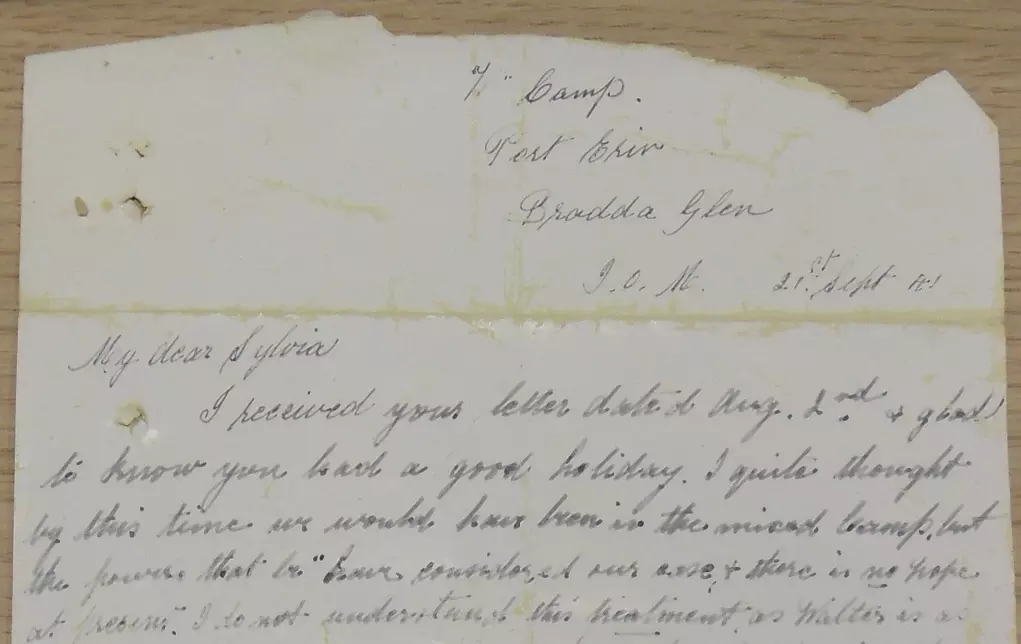 Y" Camp.
Port Erin
Bradda Glen
I. O. M. 21st Sept 41
My dear Sylvia
I received your letter dated Aug. 2nd & glad
to know you had a good holiday. I quite thought
by this time we would have been in the mixed Camp, but
the powers that be "have considered our case & there is no hope
at present". I do not understand this treatment as Walter is as